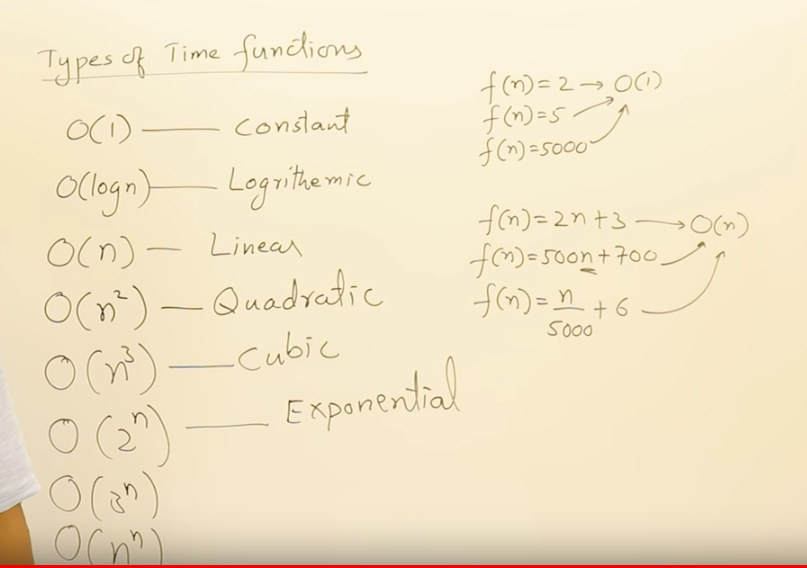 Types of Time functions
O(1) — Constant
O(logn) — Logrithemic
O(n) — Linear
O(n²) — Quadratic
O(n³) — Cubic
O(2ⁿ) — Exponential
O(3ⁿ)
O(nⁿ)
f(n) = 2 → O(1)
f(n) = 5
f(n) = 5000
f(n) = 2n + 3 → O(n)
f(n) = 500n + 700
f(n) = n/5000 + 6